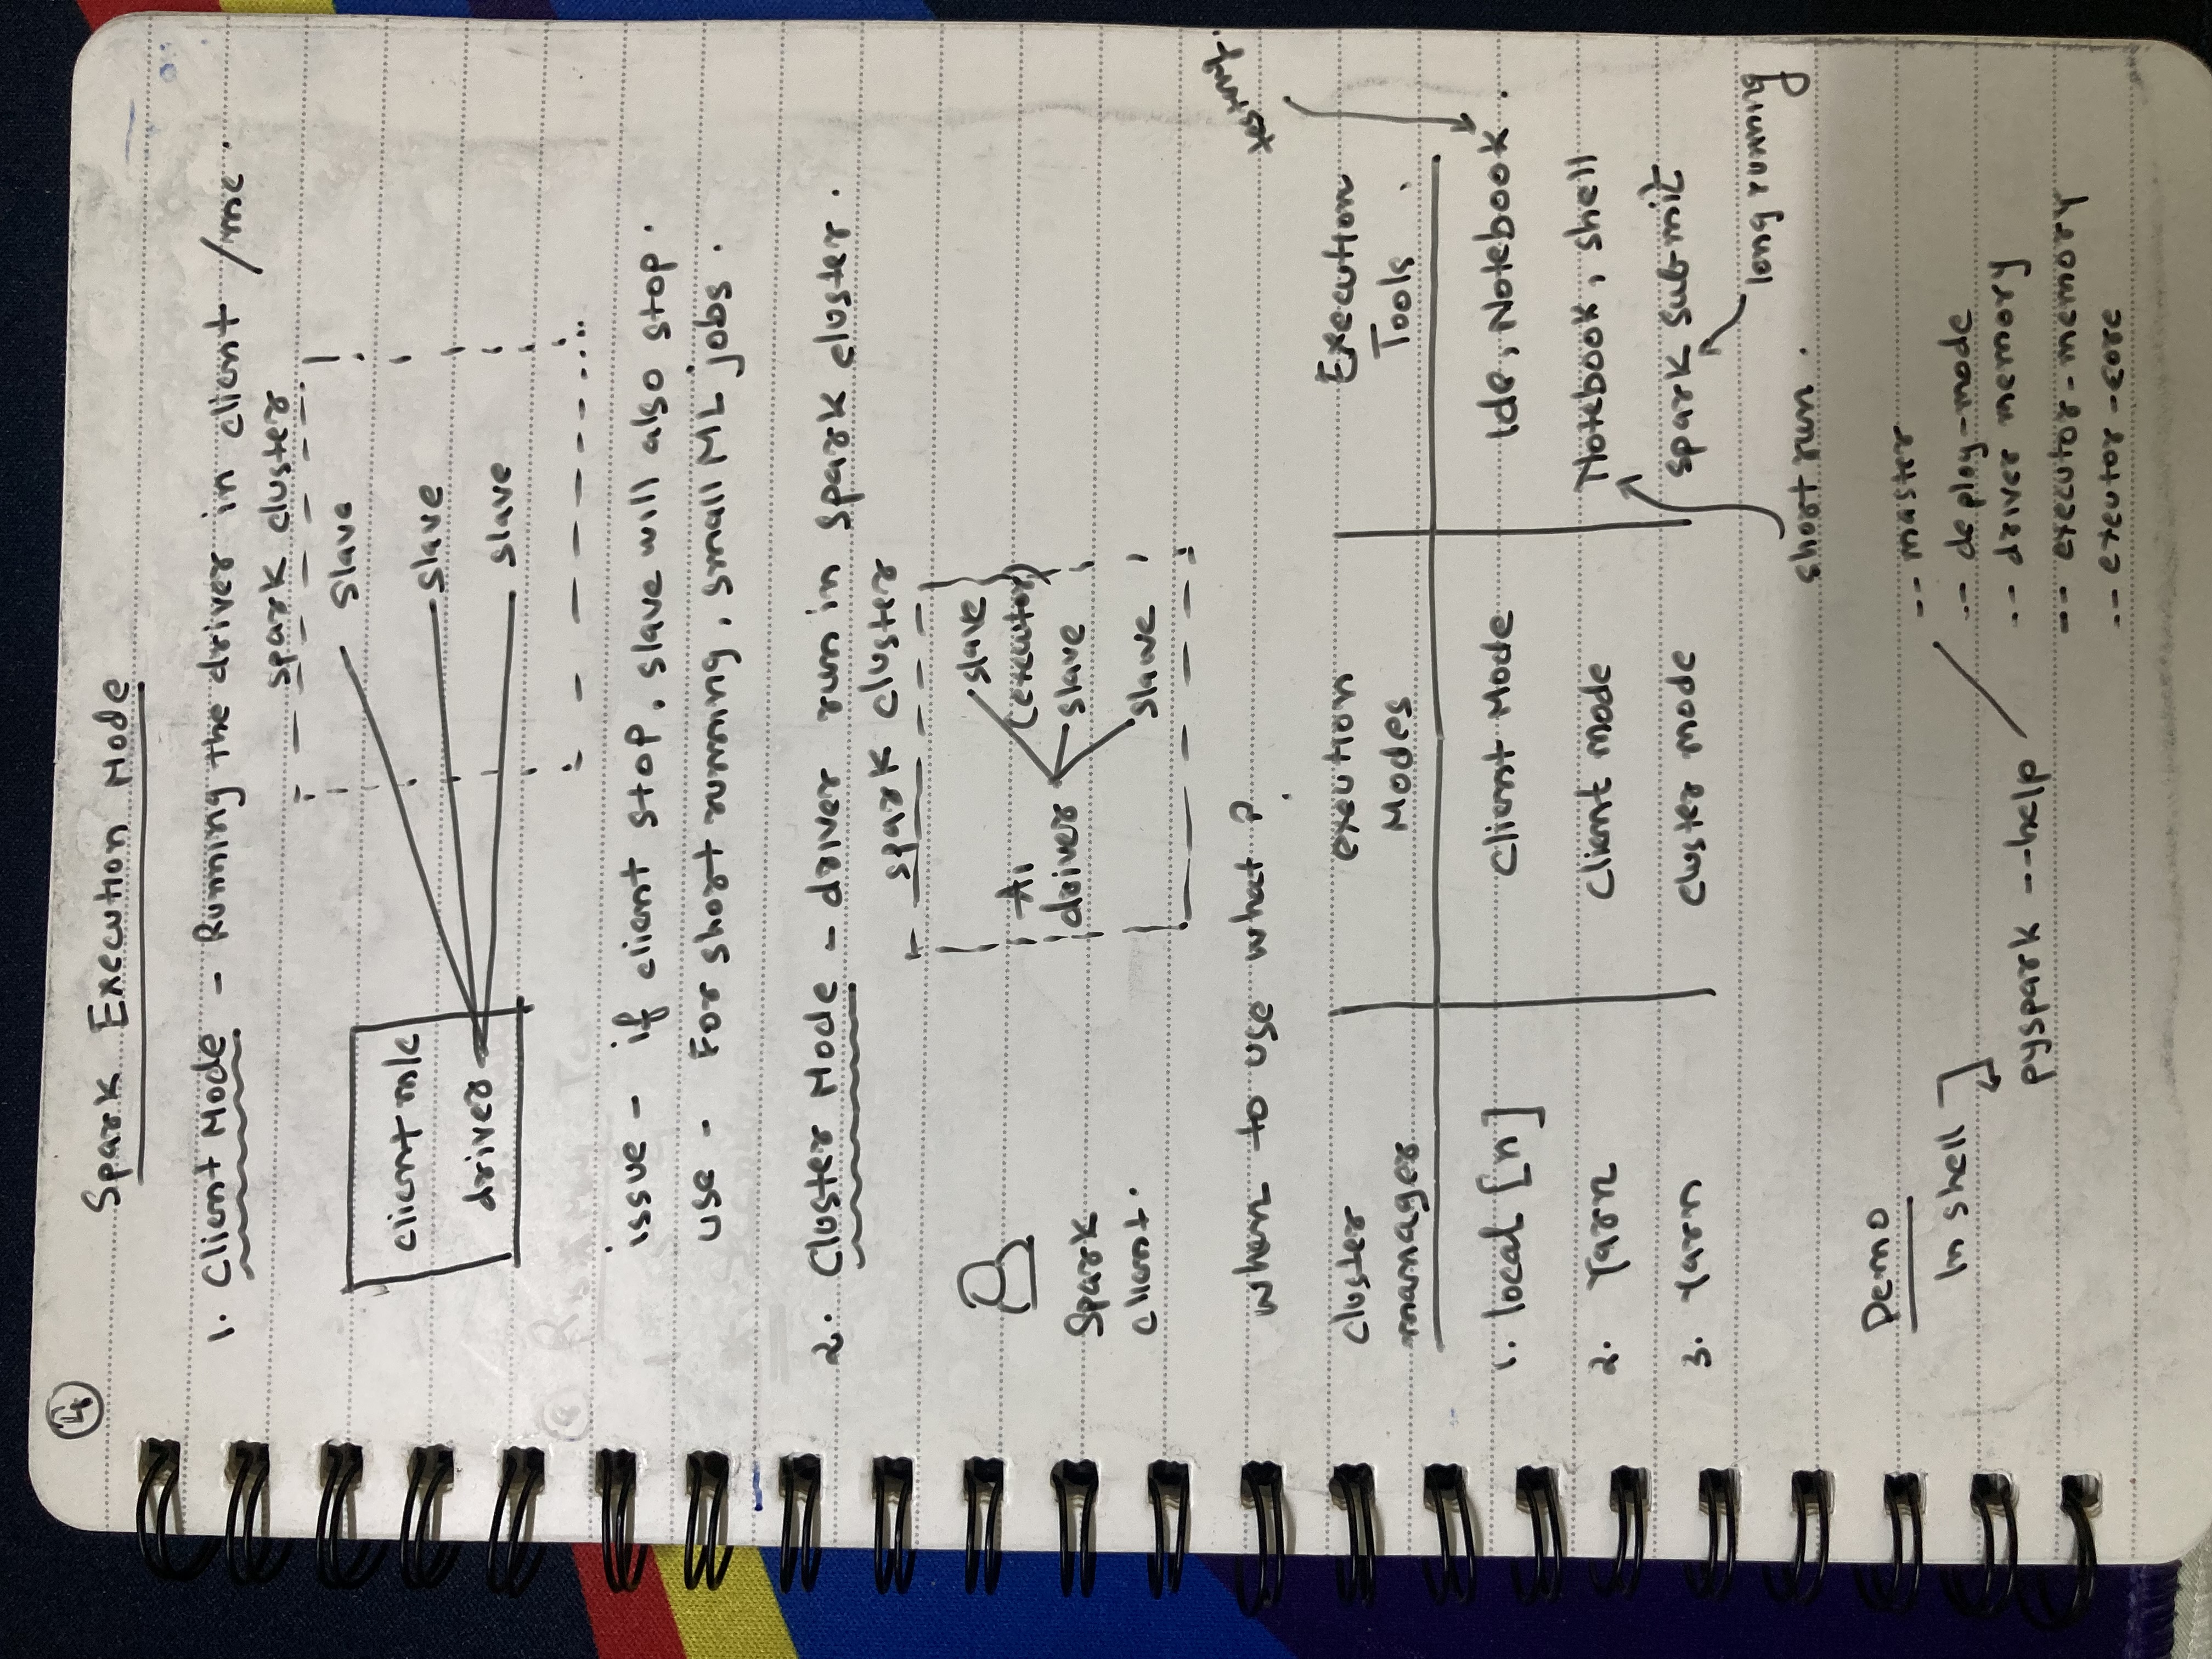 4
Spark Execution Mode
1. Client Mode - Running the driver in client /mc.
spark cluster
slave
client m/c
slave
driver
slave
issue - if client stop, slave will also stop.
use - For short running, small ML jobs.
2. Cluster Mode - driver run in spark cluster.
spark cluster
slave
A1
(executor)
driver
slave
Spark
client.
slave
when to use what ?
testing.
cluster exeution Execution
manager Modes Tools
1. local [n] Client Mode Ide, Notebook.
2. Yarn Client mode Notebook, shell
3. Yarn Cluster mode spark submit
long running
short run.
Demo
-- master
In shell
-- deploy-mode
-- driver memory
pyspark --help
-- executor-memory
-- exeutor-core